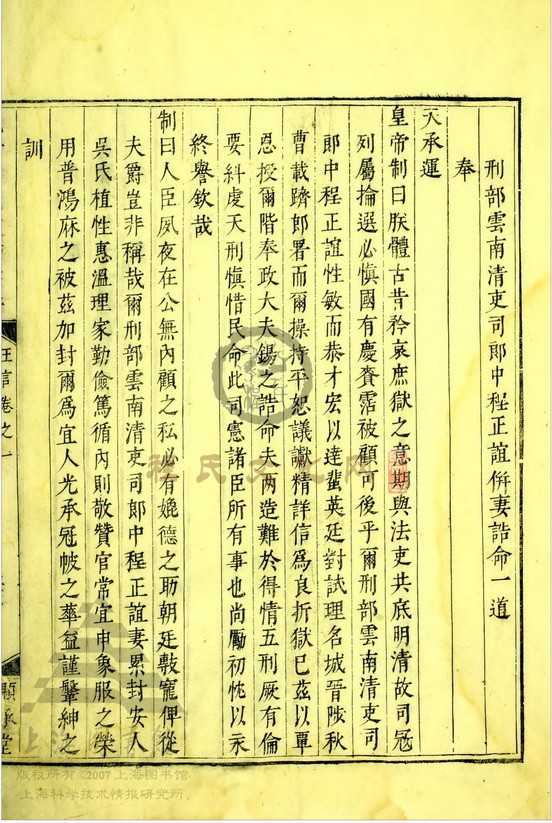 刑部雲南清吏司郎中程正誼併妻誥命一道
奉
天承運
皇帝制曰朕體古昔矜哀庶獄之意期與法吏共底明清故司冠
列屬掄選必慎國有慶賚霑被顧可後乎爾刑部雲南清吏司
郎中程正誼性敏而恭才宏以達蜚英廷對試理名城晉陟秋
曹載躋郎署而爾操持平恕議讞精詳信為良折獄已茲以覃
恩授爾階奉政大夫錫之誥命夫两造難於得情五刑厥有倫
要紏虔天刑慎惜民命此司憲諸臣所有事也尚勵初忱以永
終譽欽哉
制曰人臣夙夜在公無內顧之私必有娩德之助朝廷敦寵俾從
夫爵豈非稱哉爾刑部雲南清吏司郎中程正誼妻累封安人
吳氏植性惠溫理家勤儉篤循內則敬贊官常宜申象服之榮
用普鴻庥之被茲加封爾為宜人光承冠帔之華益謹鞶紳之
訓
王言卷之一
顯承堂
版权所有©2007上海图书馆
上海科学技术情报研究所